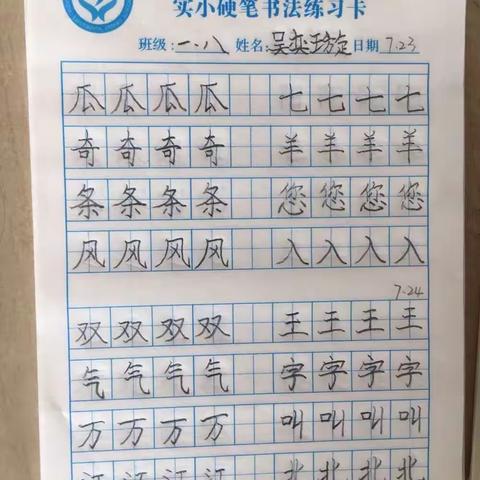 实小硬笔书法练习卡
班级:一.八 姓名: 日期 7.23
瓜瓜瓜瓜 七七七七
奇奇奇奇 羊羊羊羊
条条条条 您您您您
风风风风 入入入入
7.24
双双双双 王王王王
气气气气 字字字字
万万万万 叫叫叫叫
江江江江 北北北北